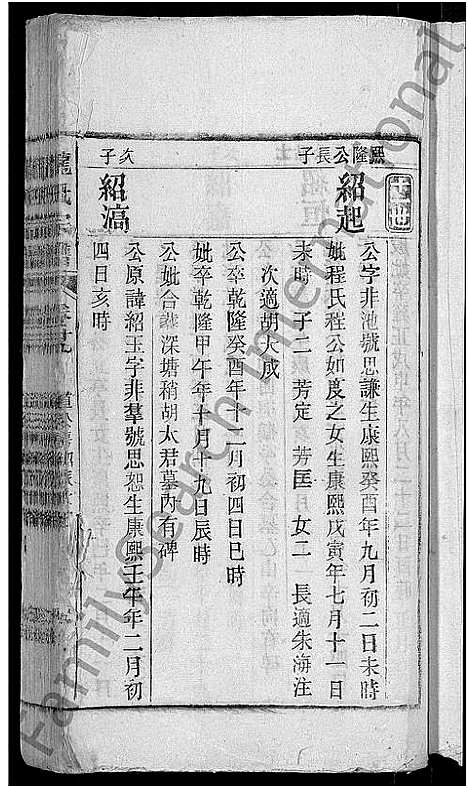 熙隆公長子
紹起
公字非池號思謙生康熙癸酉年九月初二日未時
妣程氏程公如度之女生康熙戊寅年七月十一日
未時 子二 芳定 芳匡 女二 長適朱海注
次適胡大成
公卒乾隆癸酉年十二月初四日巳時
妣卒乾隆甲午年十月十九日辰時
公妣合葬深塘稍胡太君墓內有碑
次子
紹滈
公原諱紹玉字非羣號思恕生康熙壬午年二月初
四日亥時
FamilySearch International